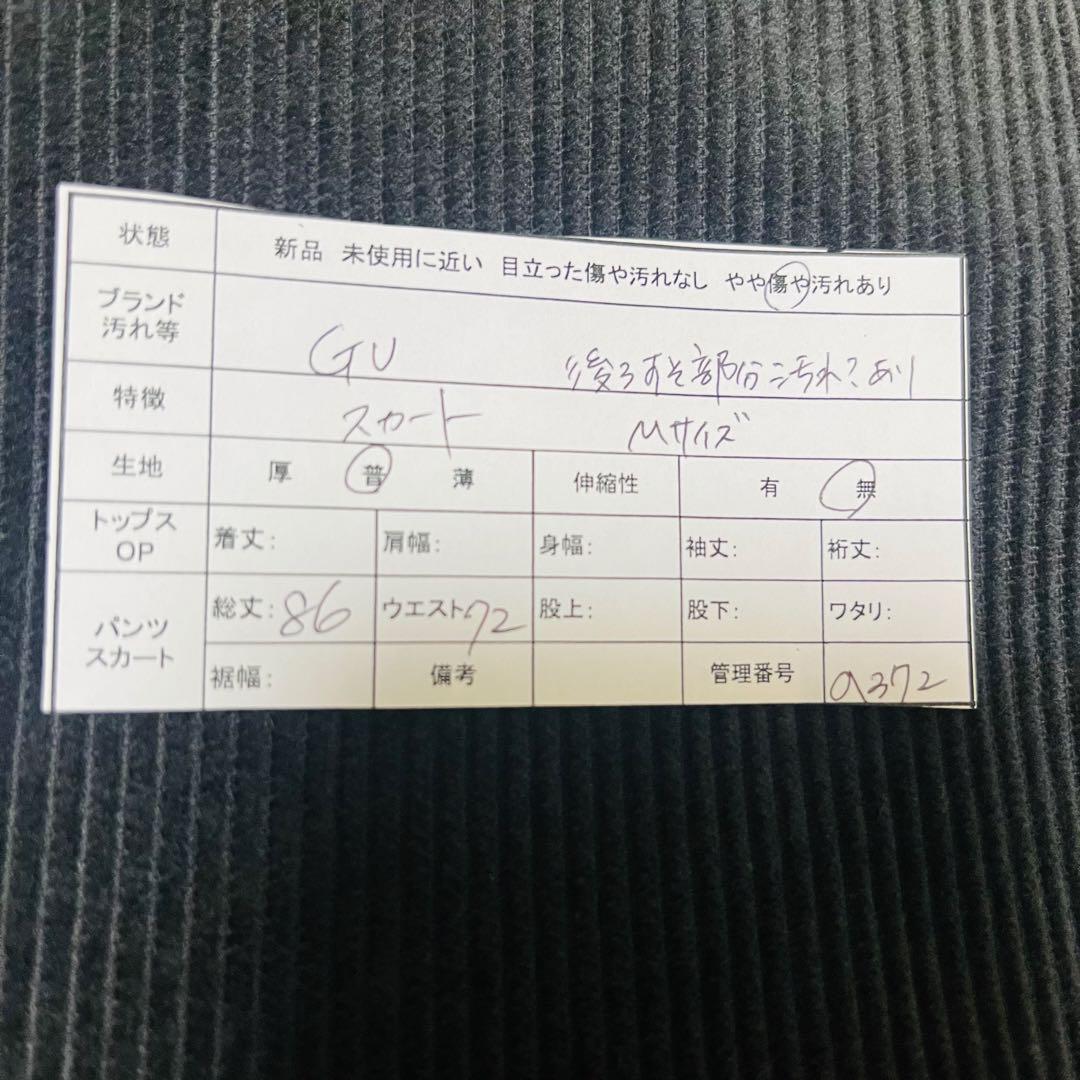 状態 新品 未使用に近い 目立った傷や汚れなし やや傷や汚れあり
ブランド 汚れ等 GU 後ろすそ部分に汚れ?あり
特徴 スカート Mサイズ
生地 厚 普 薄 伸縮性 有 無
トップス OP 着丈: 肩幅: 身幅: 袖丈: 裄丈:
パンツ スカート 総丈: 86 ウエスト 72 股上: 股下: ワタリ:
裾幅: 備考 管理番号 a372